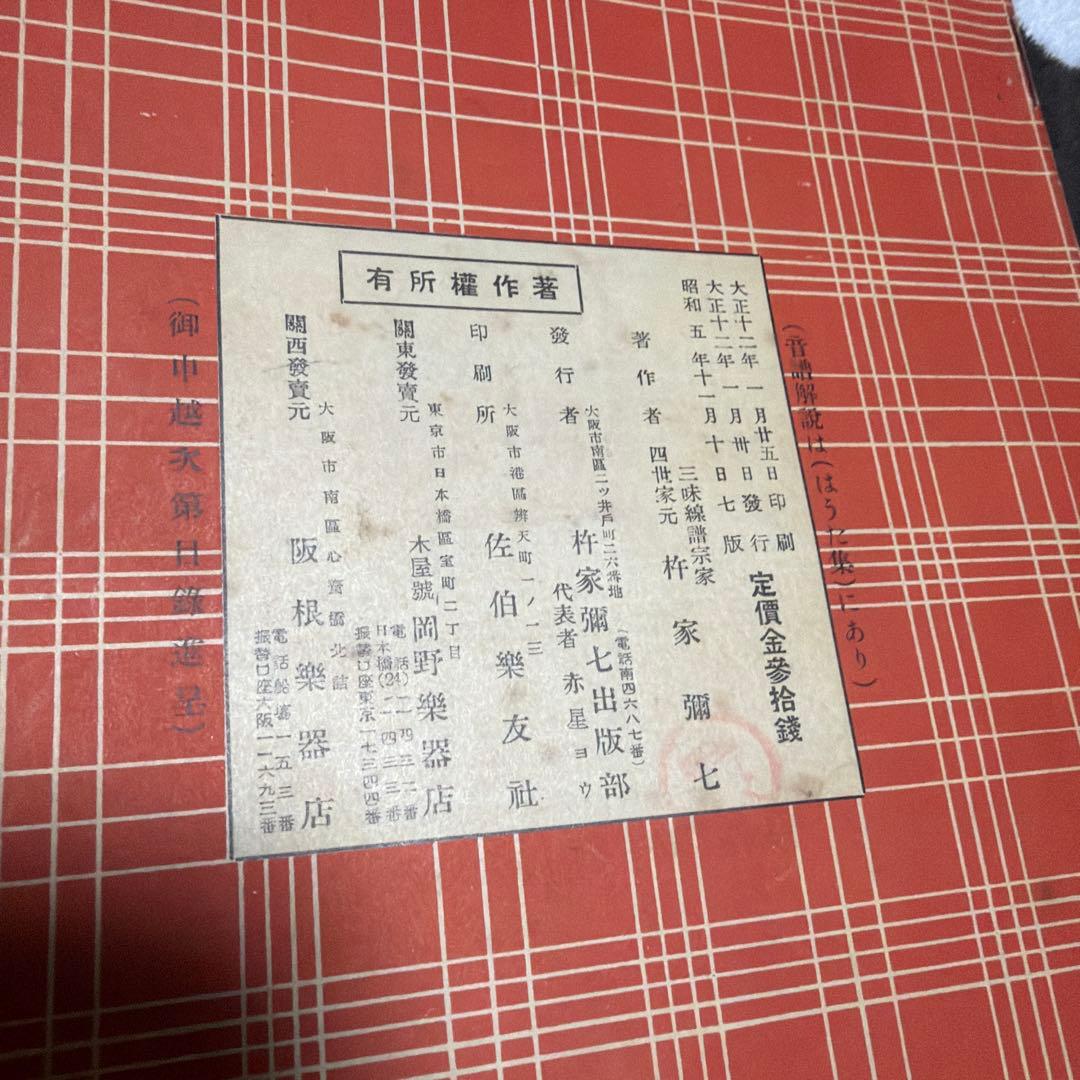 (音譜解説は(はうた集)にあり)
大正十二年一月廿五日印刷
大正十二年一月卅日發行
昭和五年十一月十日七版
定價金參拾錢
著作者
三味線譜宗家
四世家元
杵家彌七
發行者
大阪市南區二ッ井戸町二六番地
(電話南四六八七番)
杵家彌七出版部
代表者 赤星ヨウ
印刷所
大阪市港區辨天町一ノ一三
佐伯樂友社
著作權所有
關東發賣元
東京市日本橋區室町二丁目
木屋號 岡野樂器店
電話
日本橋(24)
二四三二番
二四三三番
振替口座東京一七三四四番
關西發賣元
大阪市南區心齋橋北詰
阪根樂器店
電話船場一五三番
振替口座大阪一二六九三番
(御申越次第目錄進呈)